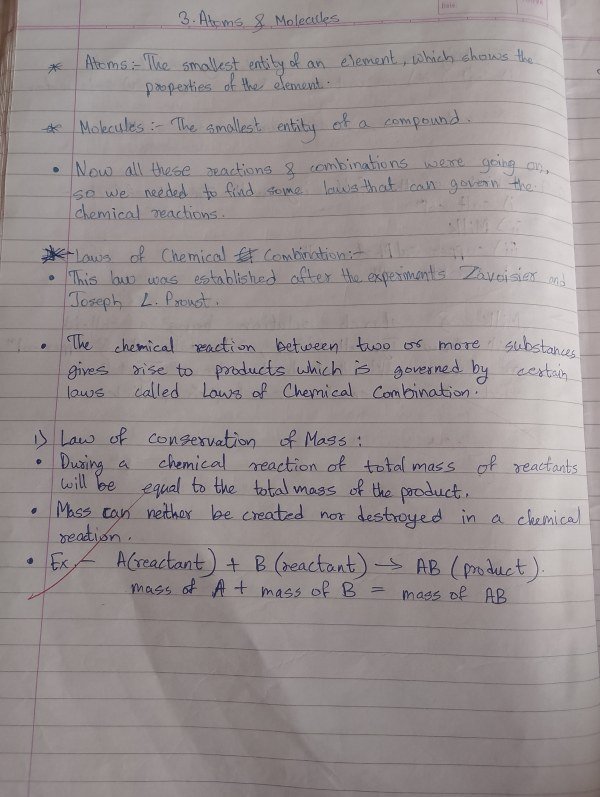 3. Atoms & Molecules
* Atoms:- The smallest entity of an element, which shows the
properties of the element.
* Molecules:- The smallest entity of a compound.
• Now all these reactions & combinations were going on,
so we needed to find some laws that can govern the
chemical reactions.
* Laws of Chemical Combination:-
• This law was established after the experiments Lavoisier and
Joseph L. Proust.
• The chemical reaction between two or more substances
gives rise to products which is governed by certain
laws called Laws of Chemical Combination.
1) Law of conservation of Mass:
• During a chemical reaction of total mass of reactants
will be equal to the total mass of the product.
• Mass can neither be created nor destroyed in a chemical
reaction.
• Ex.- A(reactant) + B(reactant) → AB (product).
mass of A + mass of B = mass of AB